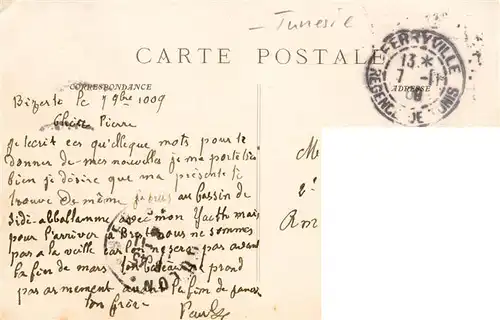 Tunesie
CARTE POSTALE
FERRYVILLE
13 *
7 - 11
09
REGENCE DE TUNIS
CORRESPONDANCE
ADRESSE
Bizerte le 7 9bre 1909
Cher Pierre
Je tecrit ces quellque mots pour te
donner de mes nouvelles je me porte très
bien je désire que ma présente ti
trouve de même je suis au bassin de
Sidi-abdallamme avec mon Yacth mais
pour l'arriver à Brest nous ne sommes
pas a la veille car lon ne sera pas avant
la fin de mars ton bateau ne prend
pas armement avant la fin de janvier
ton frère
Paul
TOULON